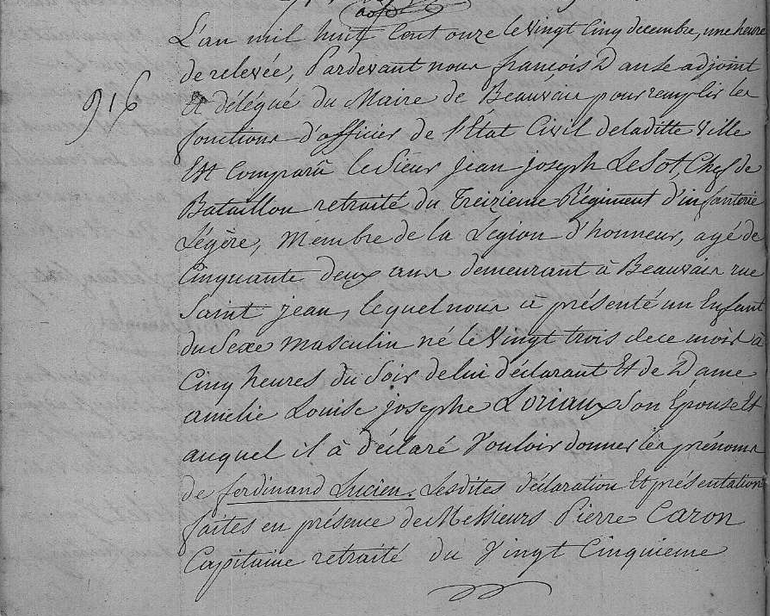 L'an mil huit Cent onze le Vingt Cinq decembre, une heure
de relevée, Pardevant nous françois Danse adjoint
916
Et délégué du Maire de Beauvais pour remplir les
fonctions d'officier de l'Etat Civil de laditte Ville
Est Comparu le Sieur Jean joseph LeSot, Chef de
Bataillon retraité du Treizieme Régiment d'infanterie
Légère, Membre de la Legion d'honneur, agé de
Cinquante deux ans demeurant à Beauvais rue
Saint jean, lequel nous à présenté un Enfant
du Sexe masculin né le Vingt trois de ce mois à
Cinq heures du Soir de lui déclarant Et de Dame
amélie Louise josephe Loriaux Son Epouse Et
auquel il à déclaré Vouloir donner les prénoms
de ferdinand Lucien. Lesdites déclaration Et présentation
faites en présence de Messieurs Pierre Caron
Capitaine retraité du Vingt Cinquieme